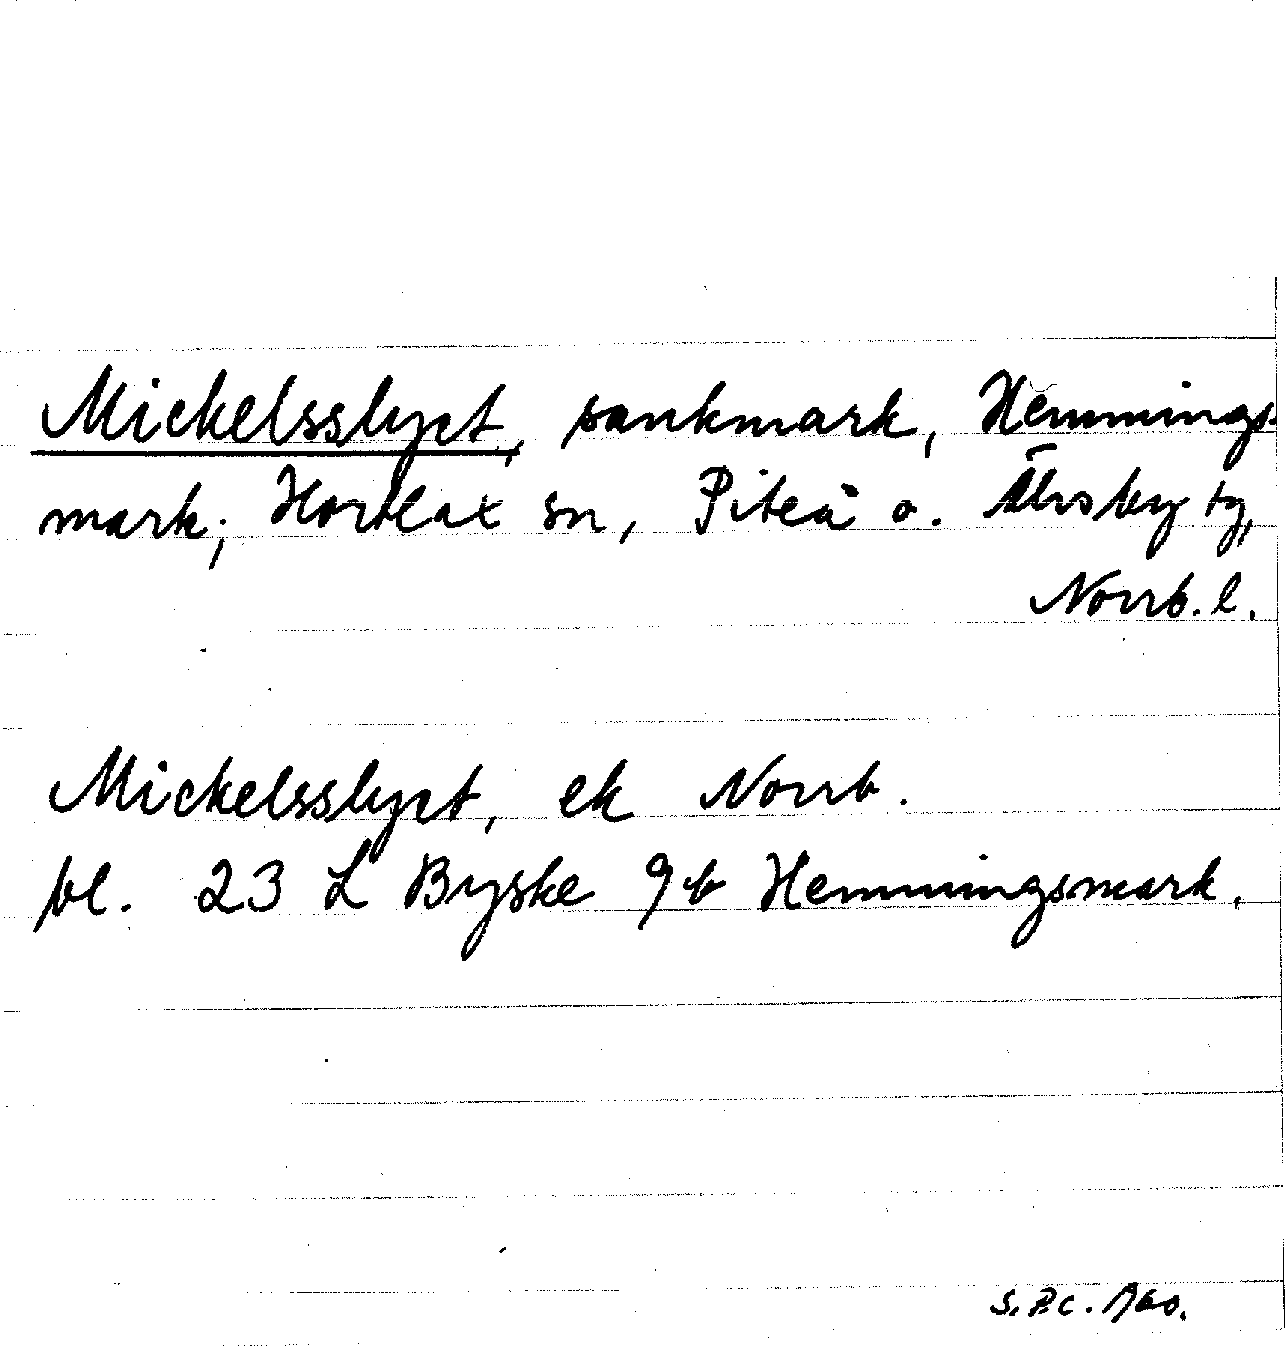 Mickelsslyct, sankmark, Hemmings-
mark; Hortlax sn, Piteå o. Älvsby tg,
Norrb. l.
Mickelsslyct, ek Norrb.
bl. 23 L Byske 9b Hemmingsmark.